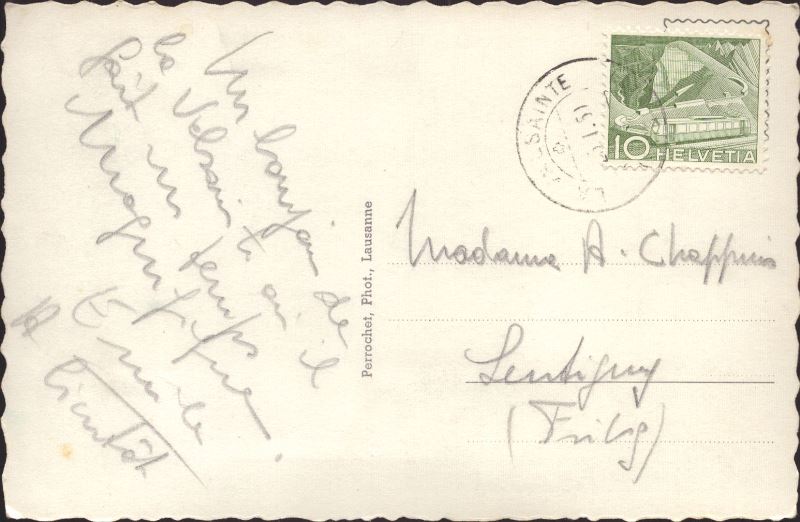 Un bonjour de
la Valsainte où il
fait un temps
magnifique.
Emile
A bientôt
Perrochet, Phot., Lausanne
LA VALSAINTE
10 HELVETIA
Madame A. Chappuis
Lentigny
(Fribg)